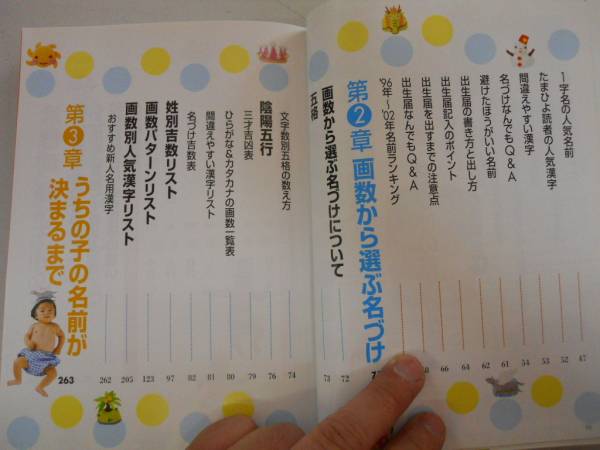 1字名の人気名前 47
たまひよ読者の人気漢字 52
間違えやすい漢字 53
名づけなんでもQ&A 54
避けたほうがいい名前 61
出生届の書き方と出し方 62
出生届記入のポイント 64
出生届を出すまでの注意点 66
出生届なんでもQ&A
'96年〜'02年名前ランキング
第2章 画数から選ぶ名づけ
画数から選ぶ名づけについて 72
五格 73
文字数別五格の数え方 74
陰陽五行 76
三才吉凶表 79
ひらがな&カタカナの画数一覧表 80
間違えやすい漢字リスト 81
名づけ吉数表 82
姓別吉数リスト 97
画数パターンリスト 123
画数別人気漢字リスト 205
おすすめ新人名用漢字 262
第3章 うちの子の名前が
決まるまで 263